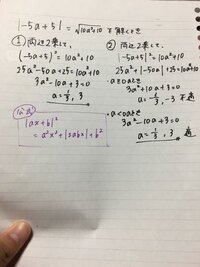 |-5a+5|=√10a²+10 を解くとき
① 両辺2乗して、
(-5a+5)²=10a²+10
25a²-50a+25=10a²+10
3a²-10a+3=0
a=1/3, 3
② 両辺2乗して、
|-5a+5|²=10a²+10
25a²+|-50a|+25=10a²+10
・a≥0のとき
3a²+10a+3=0
a=-1/3, -3 不適
・a<0のとき
3a²-10a+3=0
a=1/3, 3
|ax+b|²
=a²x²+|2abx|+b²